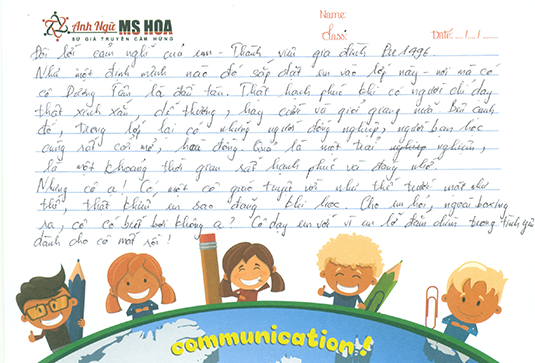 Anh Ngữ MS HOA
SỨ GIẢ TRUYỀN CẢM HỨNG
Name:
Class:
Date: .../.../...
Đôi lời cảm nghĩ của em - Thành viên gia đình Pre 1996.
Như một định mệnh nào đó sắp đặt em vào lớp này - nơi mà có
cô Dương Trần là đầu tàn. Thật hạnh phúc khi có người chỉ dạy
thật xinh xắn, dễ thương, hay cười và giỏi giang nữa. Bên cạnh
đó, trong lớp lại có những người đồng nghiệp, người bạn học
cũng rất cởi mở, hoà đồng. Quả là một trải nghiệm,
là một khoảng thời gian rất hạnh phúc và đáng nhớ.
Nhưng cô ạ! Có một cô giáo tuyệt vời như thế trước mắt như
thế, thật khiến em xao đãng khi học. Cho em hỏi, ngoài boxing
ra, cô có biết bơi không ạ? Cô dạy em với vì em lỡ đắm chìm trong tình yêu
dành cho cô mất rồi!
communication!